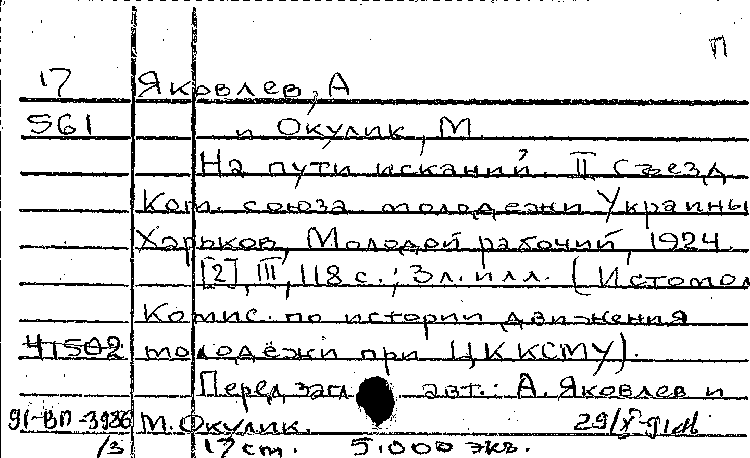 П
17 Яковлев, А
561 и Окулик, М.
На пути исканий. II Съезд
Ком. союза молодежи Украины
Харьков, Молодой рабочий, 1924.
[2], III, 118 с.; 3 л. илл. (Истомол
Комис. по истории движения
41502 молодёжи при ЦККСМУ).
Перед загл. авт.: А. Яковлев и
91-ВП-3986 М. Окулик.
/3 17 cm. 5.000 экз.